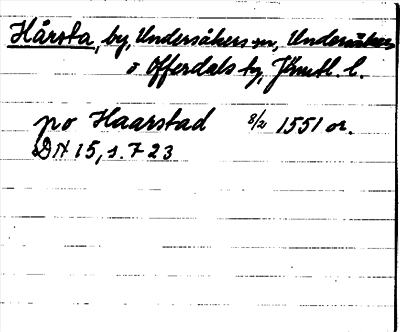 Hårsta, by, Undersåkers sn, Undersåkers
o Offerdals tg, Jämtl. l.
på Haarstad 8/2 1551 or.
DN 15, s. 723